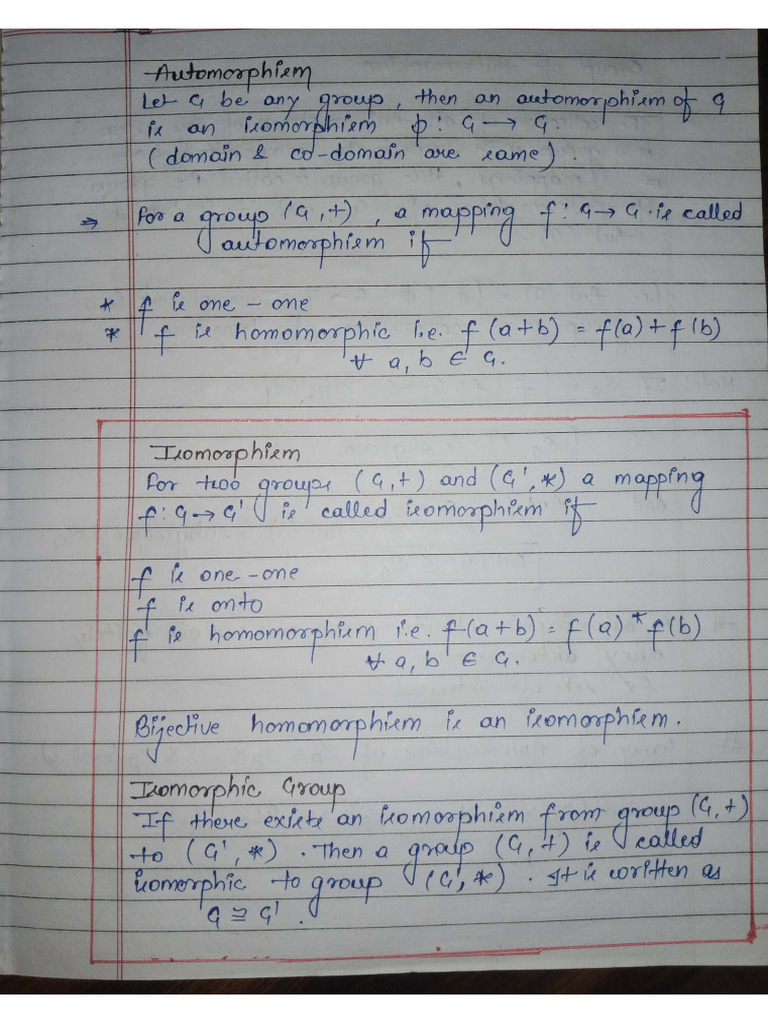 Automorphism
Let G be any group, then an automorphism of G
is an isomorphism ϕ : G → G.
(domain & co-domain are same).
⇒ For a group (G,+), a mapping f : G → G is called
automorphism if
* f is one-one
* f is homomorphic i.e. f(a+b) = f(a)+f(b)
∀ a,b ∈ G.
Isomorphism
For two groups (G,+) and (G',*) a mapping
f : G → G' is called isomorphism if
f is one-one
f is onto
f is homomorphism i.e. f(a+b) = f(a)*f(b)
∀ a,b ∈ G.
Bijective homomorphism is an isomorphism.
Isomorphic Group
If there exists an isomorphism from group (G,+)
to (G',*). Then a group (G,+) is called
isomorphic to group (G',*). It is written as
G ≅ G'.